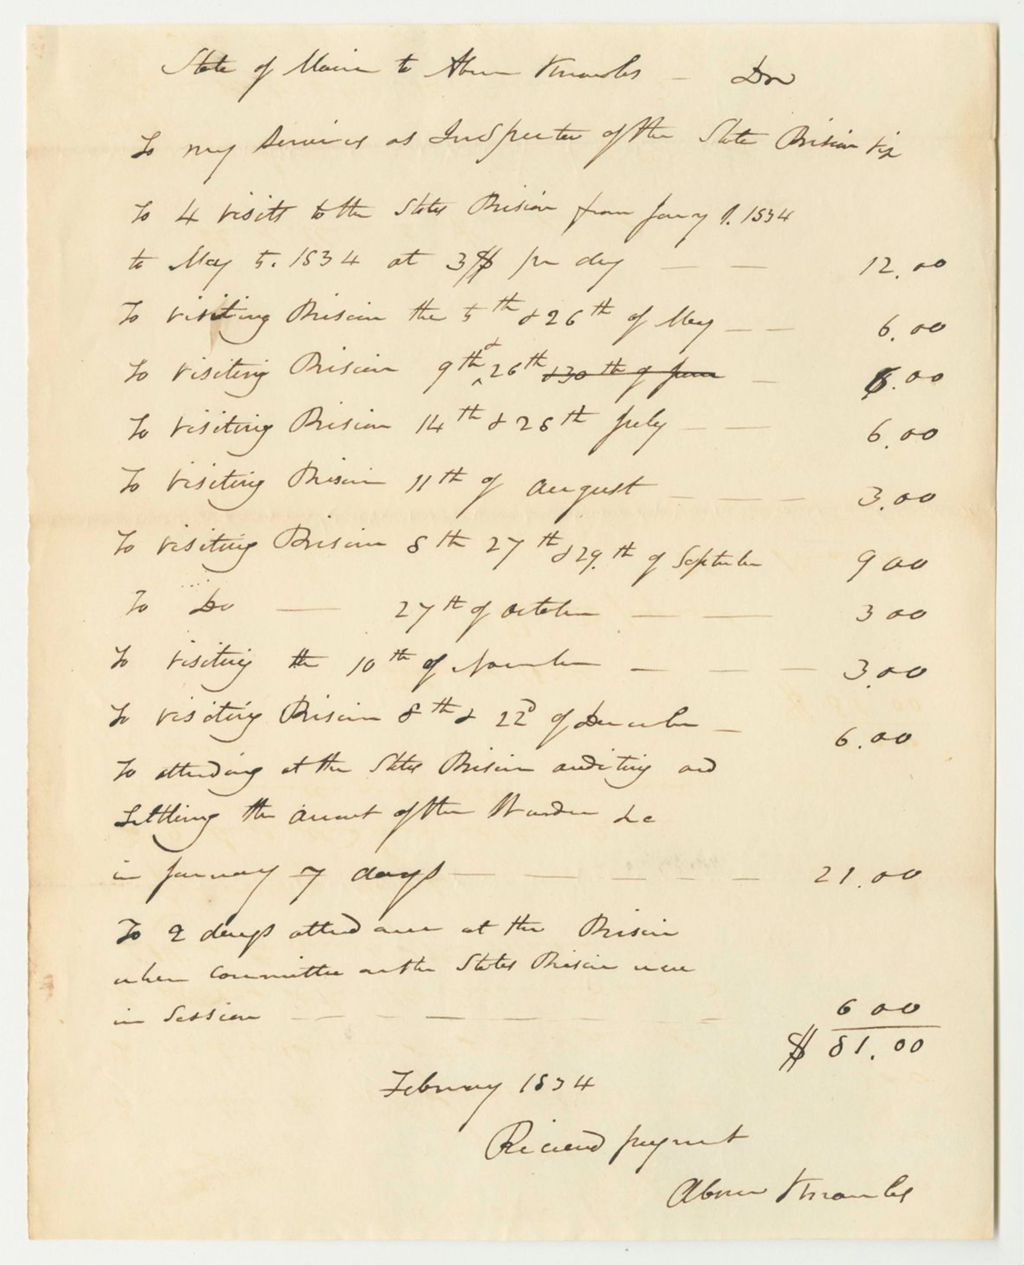 State of Maine to Abner Knowles — Dr
To my Services as Inspector of the State Prison viz
To 4 visits to the States Prison from Jany 1. 1834
to May 5. 1834 at 3$ pr day — — 12.00
To visiting Prison the 5th & 26th of May — — 6.00
To visiting Prison 9th & 26th & 30th of June — 6.00
To visiting Prison 14th & 28th July — — 6.00
To visiting Prison 11th of August — — — 3.00
To visiting Prison 8th 27th & 29th of September 9 00
To Do — 27th of October — — 3 00
To visiting the 10th of November — — — 3.00
To visiting Prison 8th & 22d of December — 6.00
To attending at the States Prison auditing and
Settling the account of the Warden &c
in January 7 days — — — — — 21.00
To 2 days attendance at the Prison
when Committee on the States Prison were
in Session — — — — — — 6 00
$ 81.00
February 1834
Received payment
Abner Knowles